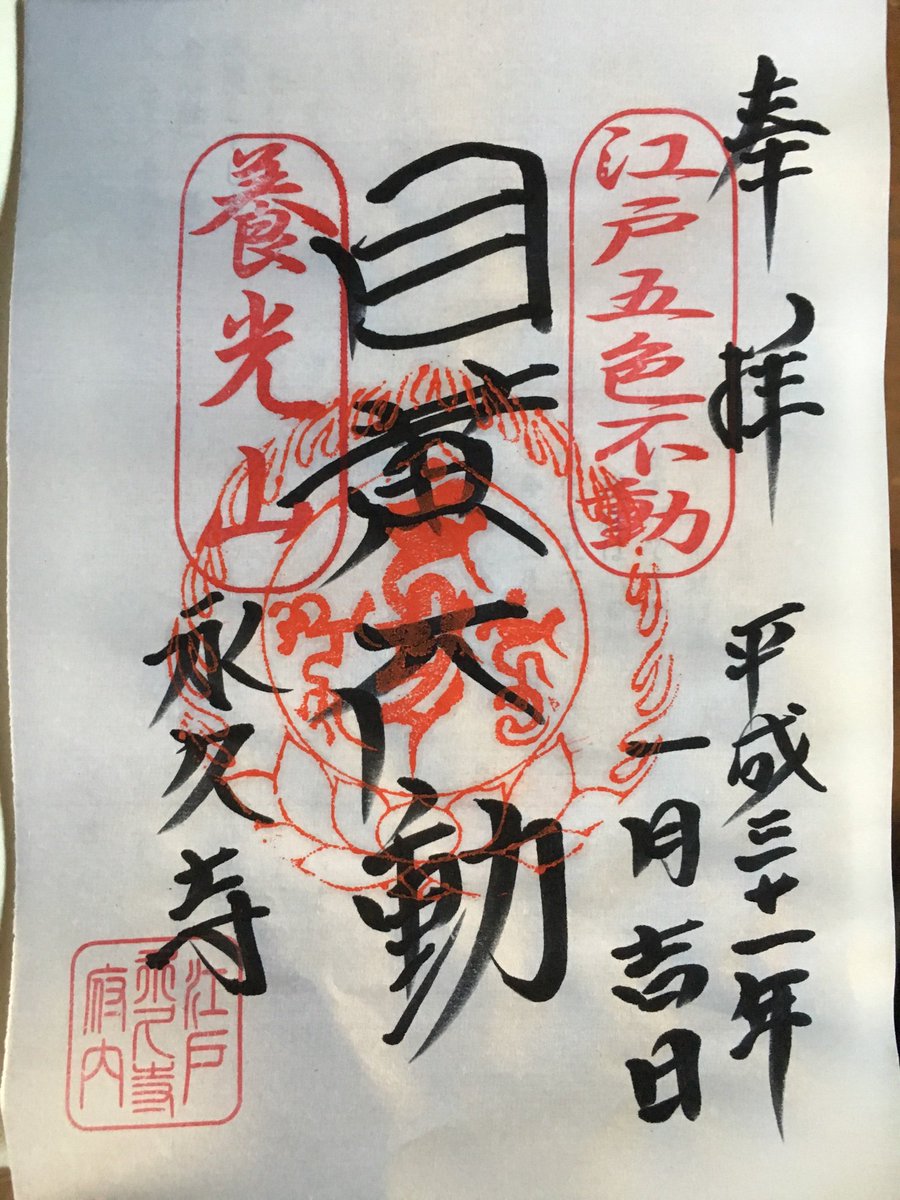 奉拝
平成三十一年
一月吉日
江戸五色不動
目黄不動
養光山
永久寺
江戸
永久寺
府内